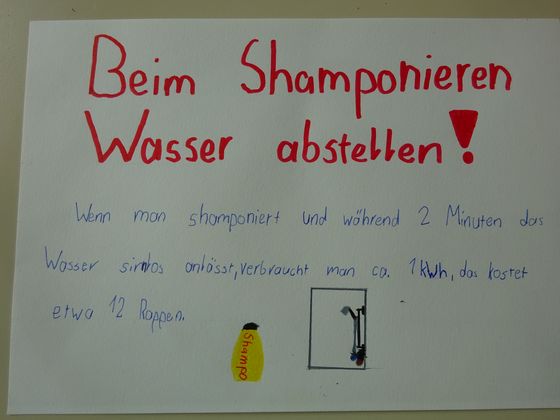 Beim Shamponieren
Wasser abstellen!
Wenn man shamponiert und während 2 Minuten das
Wasser sinnlos anlässt, verbraucht man ca. 1kWh, das kostet
etwa 12 Rappen.
Shampo